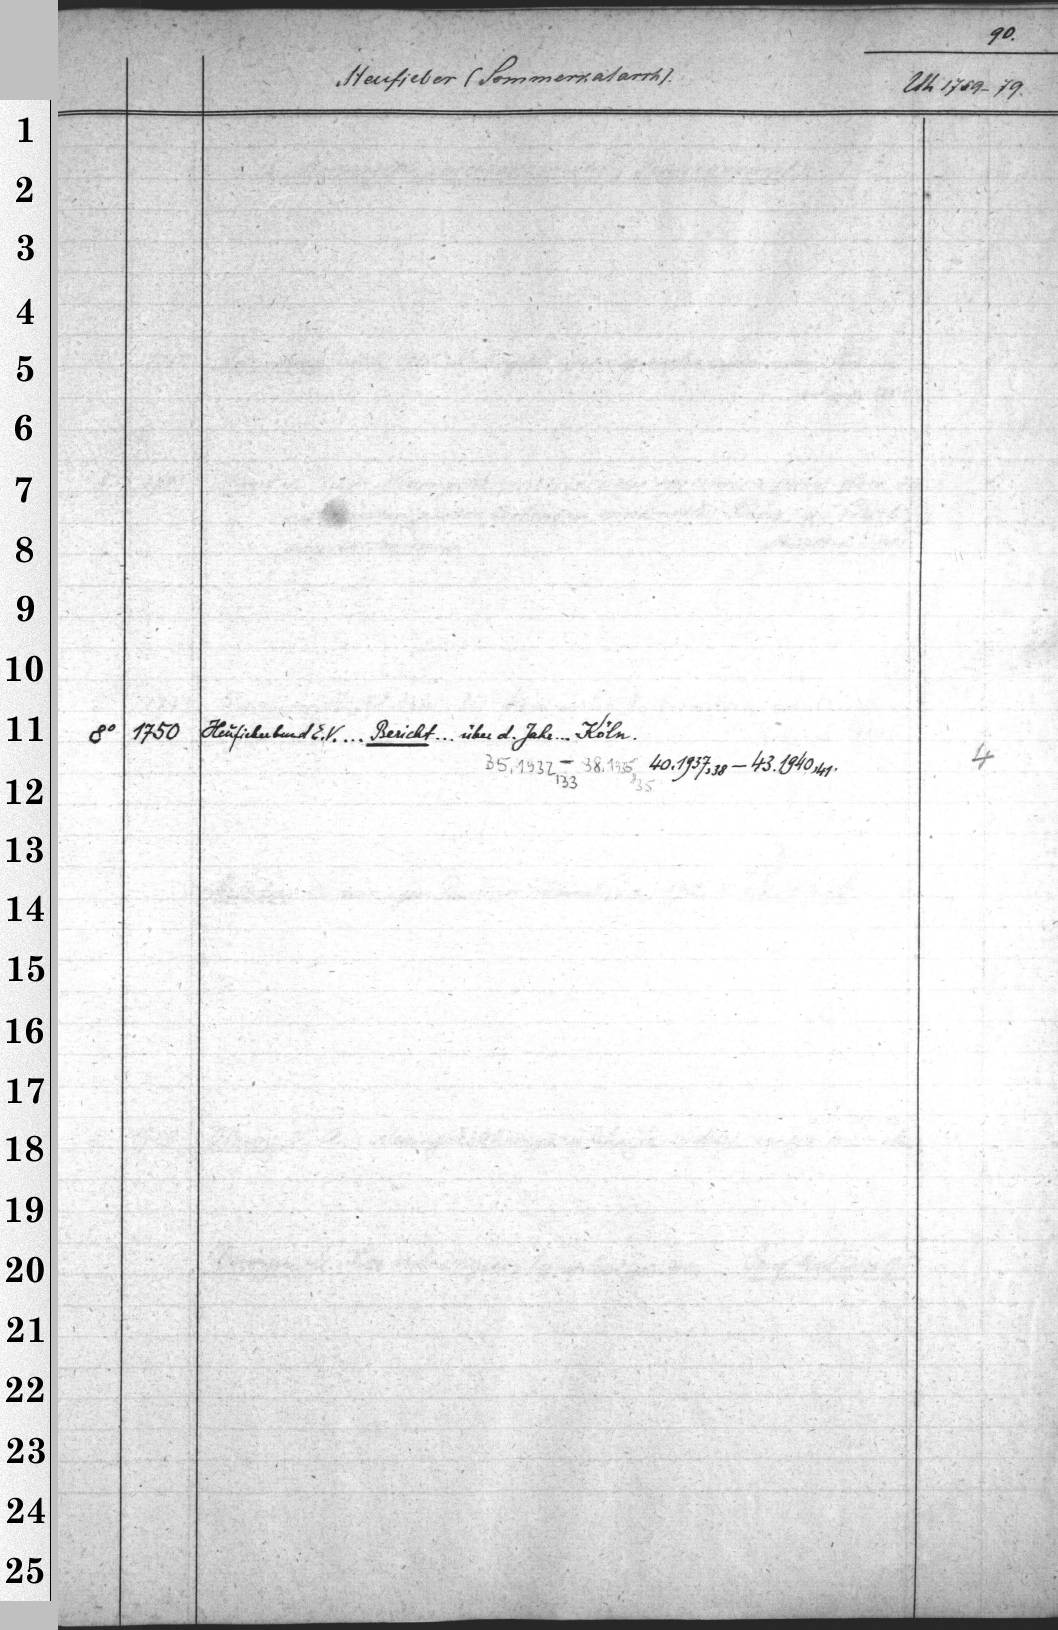 90.
Heufieber (Sommerkatarrh).
1759-79.
1
2
3
4
5
6
7
8
9
10
11
8° 1750 Heufieberbund E.V. ... Bericht ... über d. Jahr ... Köln.
35.1932,33 – 38.1935 40.1937,38 – 43.1940,41.
4
12
13
14
15
16
17
18
19
20
21
22
23
24
25